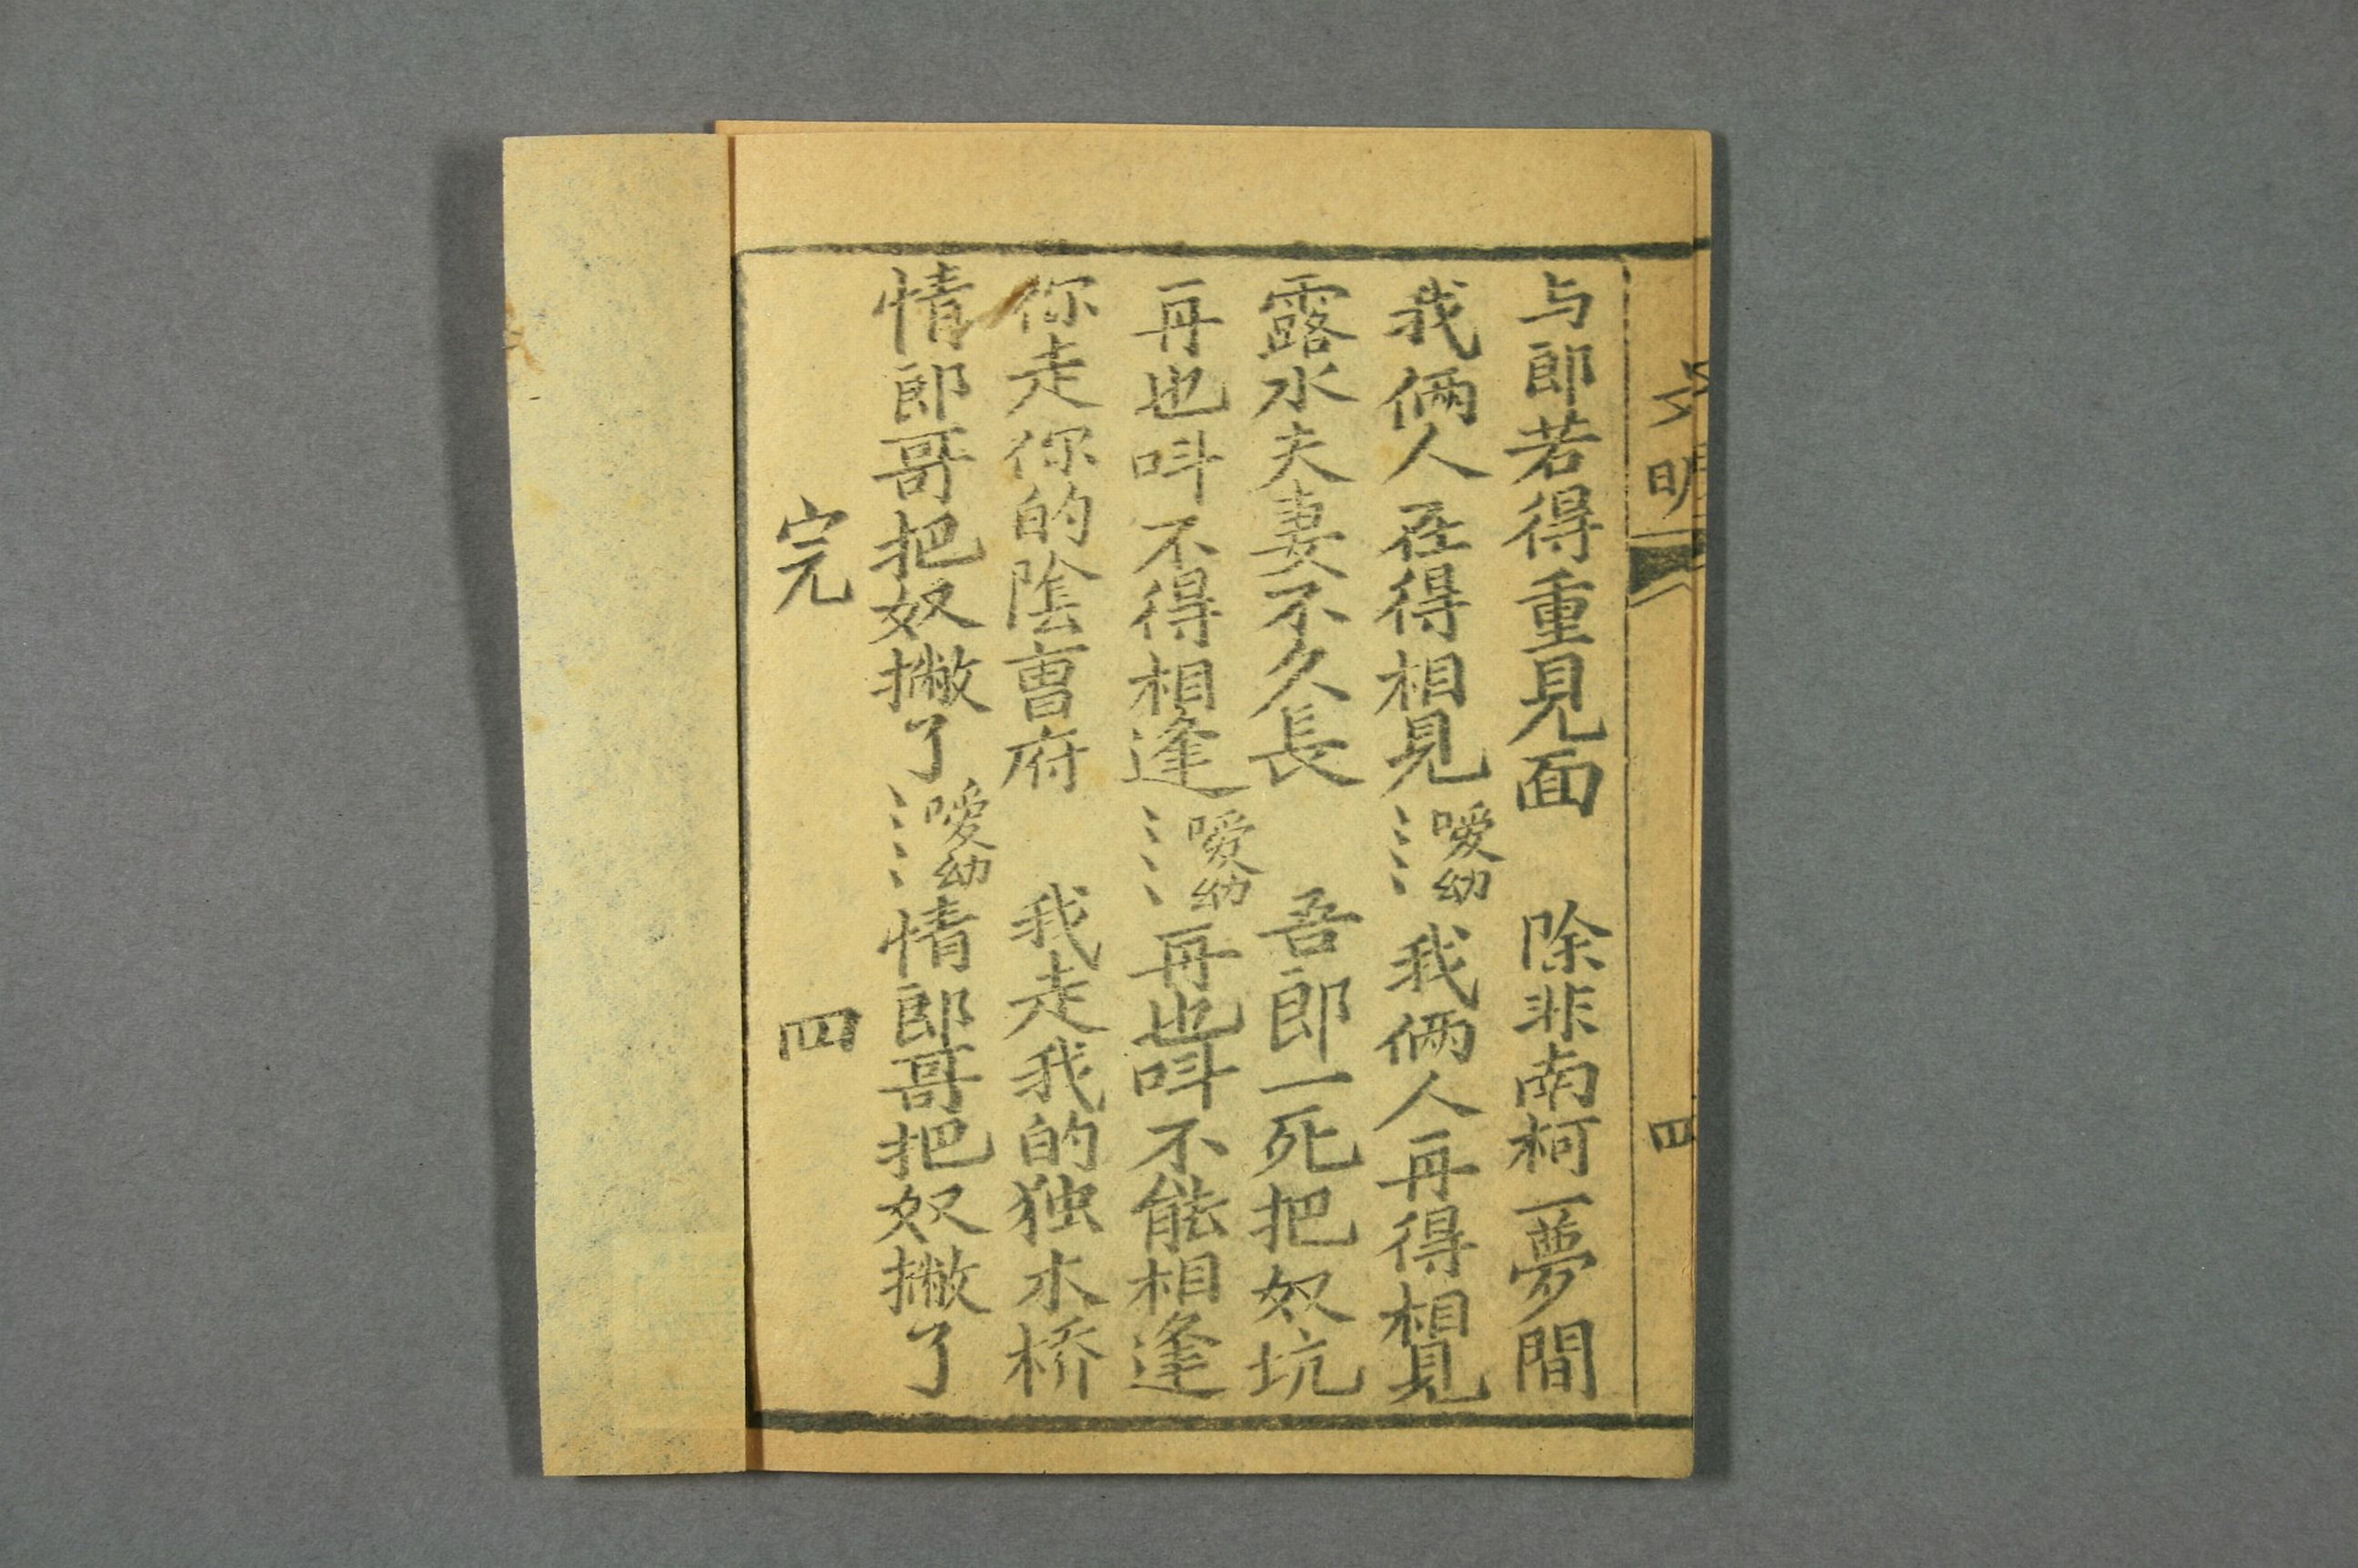 与郎若得重見面　除非南柯一夢間
我俩人在得相見噯幼〻〻我俩人再得相見
露水夫妻不久長　吾郎一死把奴坑
再也呌不得相逢噯幼〻〻再也呌不能相逢
你走你的陰曺府　我走我的独木桥
情郎哥把奴撇了噯幼〻〻情郎哥把奴撇了
完　四
四